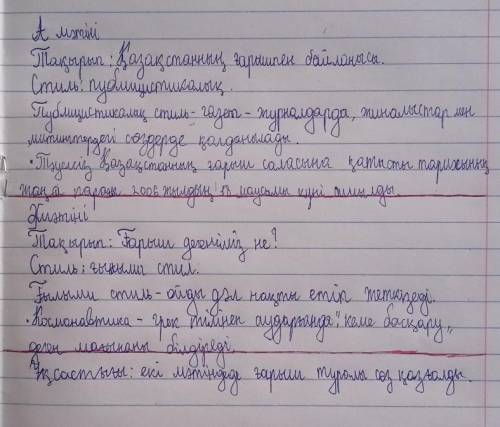 А мәтіні
Тақырып: Қазақстанның ғарышпен байланысы.
Стиль: публицистикалық.
Публицистикалық стиль - газет - журналдарда, жиналыстар мен
митингтердегі сөздерде қолданылады.
• Тәуелсіз Қазақстанның ғарыш саласына қатысты тарихының
жаңа парағы 2006 жылдың 18 маусымы күні ашылды.
Ә мәтіні
Тақырып: Ғарыш дегеніміз не?
Стиль: ғылыми стил.
Ғылыми стиль - ойды дәл нақты етіп жеткізеді.
• Космонавтика - грек тілінен аударғанда: "кеме басқару"
деген мағынаны білдіреді.
Ұқсастығы: екі мәтіндеде ғарыш туралы сөз қозғалды.